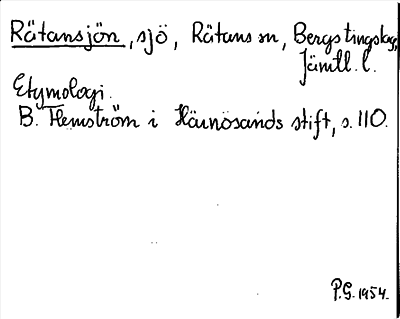 Rätansjön, sjö, Rätans sn, Bergs tingslag,
Jämtl. l.
Etymologi.
B. Flemström i Härnösands stift, s. 110.
P.G. 1954.